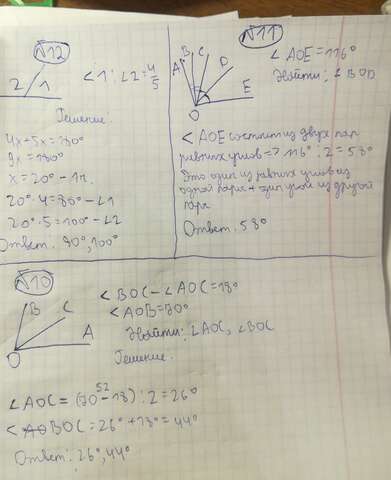 №12
2 1
∠1 : ∠2 = 4/5
Решение
4x+5x=180°
9x=180°
x=20° - 1ч.
20°·4=80° - ∠1
20°·5=100° - ∠2
Ответ. 80°, 100°
№11
A B C D E O
∠AOE=116°
Найти: ∠BOD
∠AOE состоит из двух пар
равных углов => 116° : 2 = 58°
Это один из равных углов из
одной пары + один угол из другой
пары
Ответ. 58°
№10
B C A O
∠BOC - ∠AOC = 18°
∠AOB=70°
Найти: ∠AOC, ∠BOC
Решение.
52
∠AOC = (70° - 18) : 2 = 26°
∠BOC = 26° + 18° = 44°
Ответ: 26°, 44°